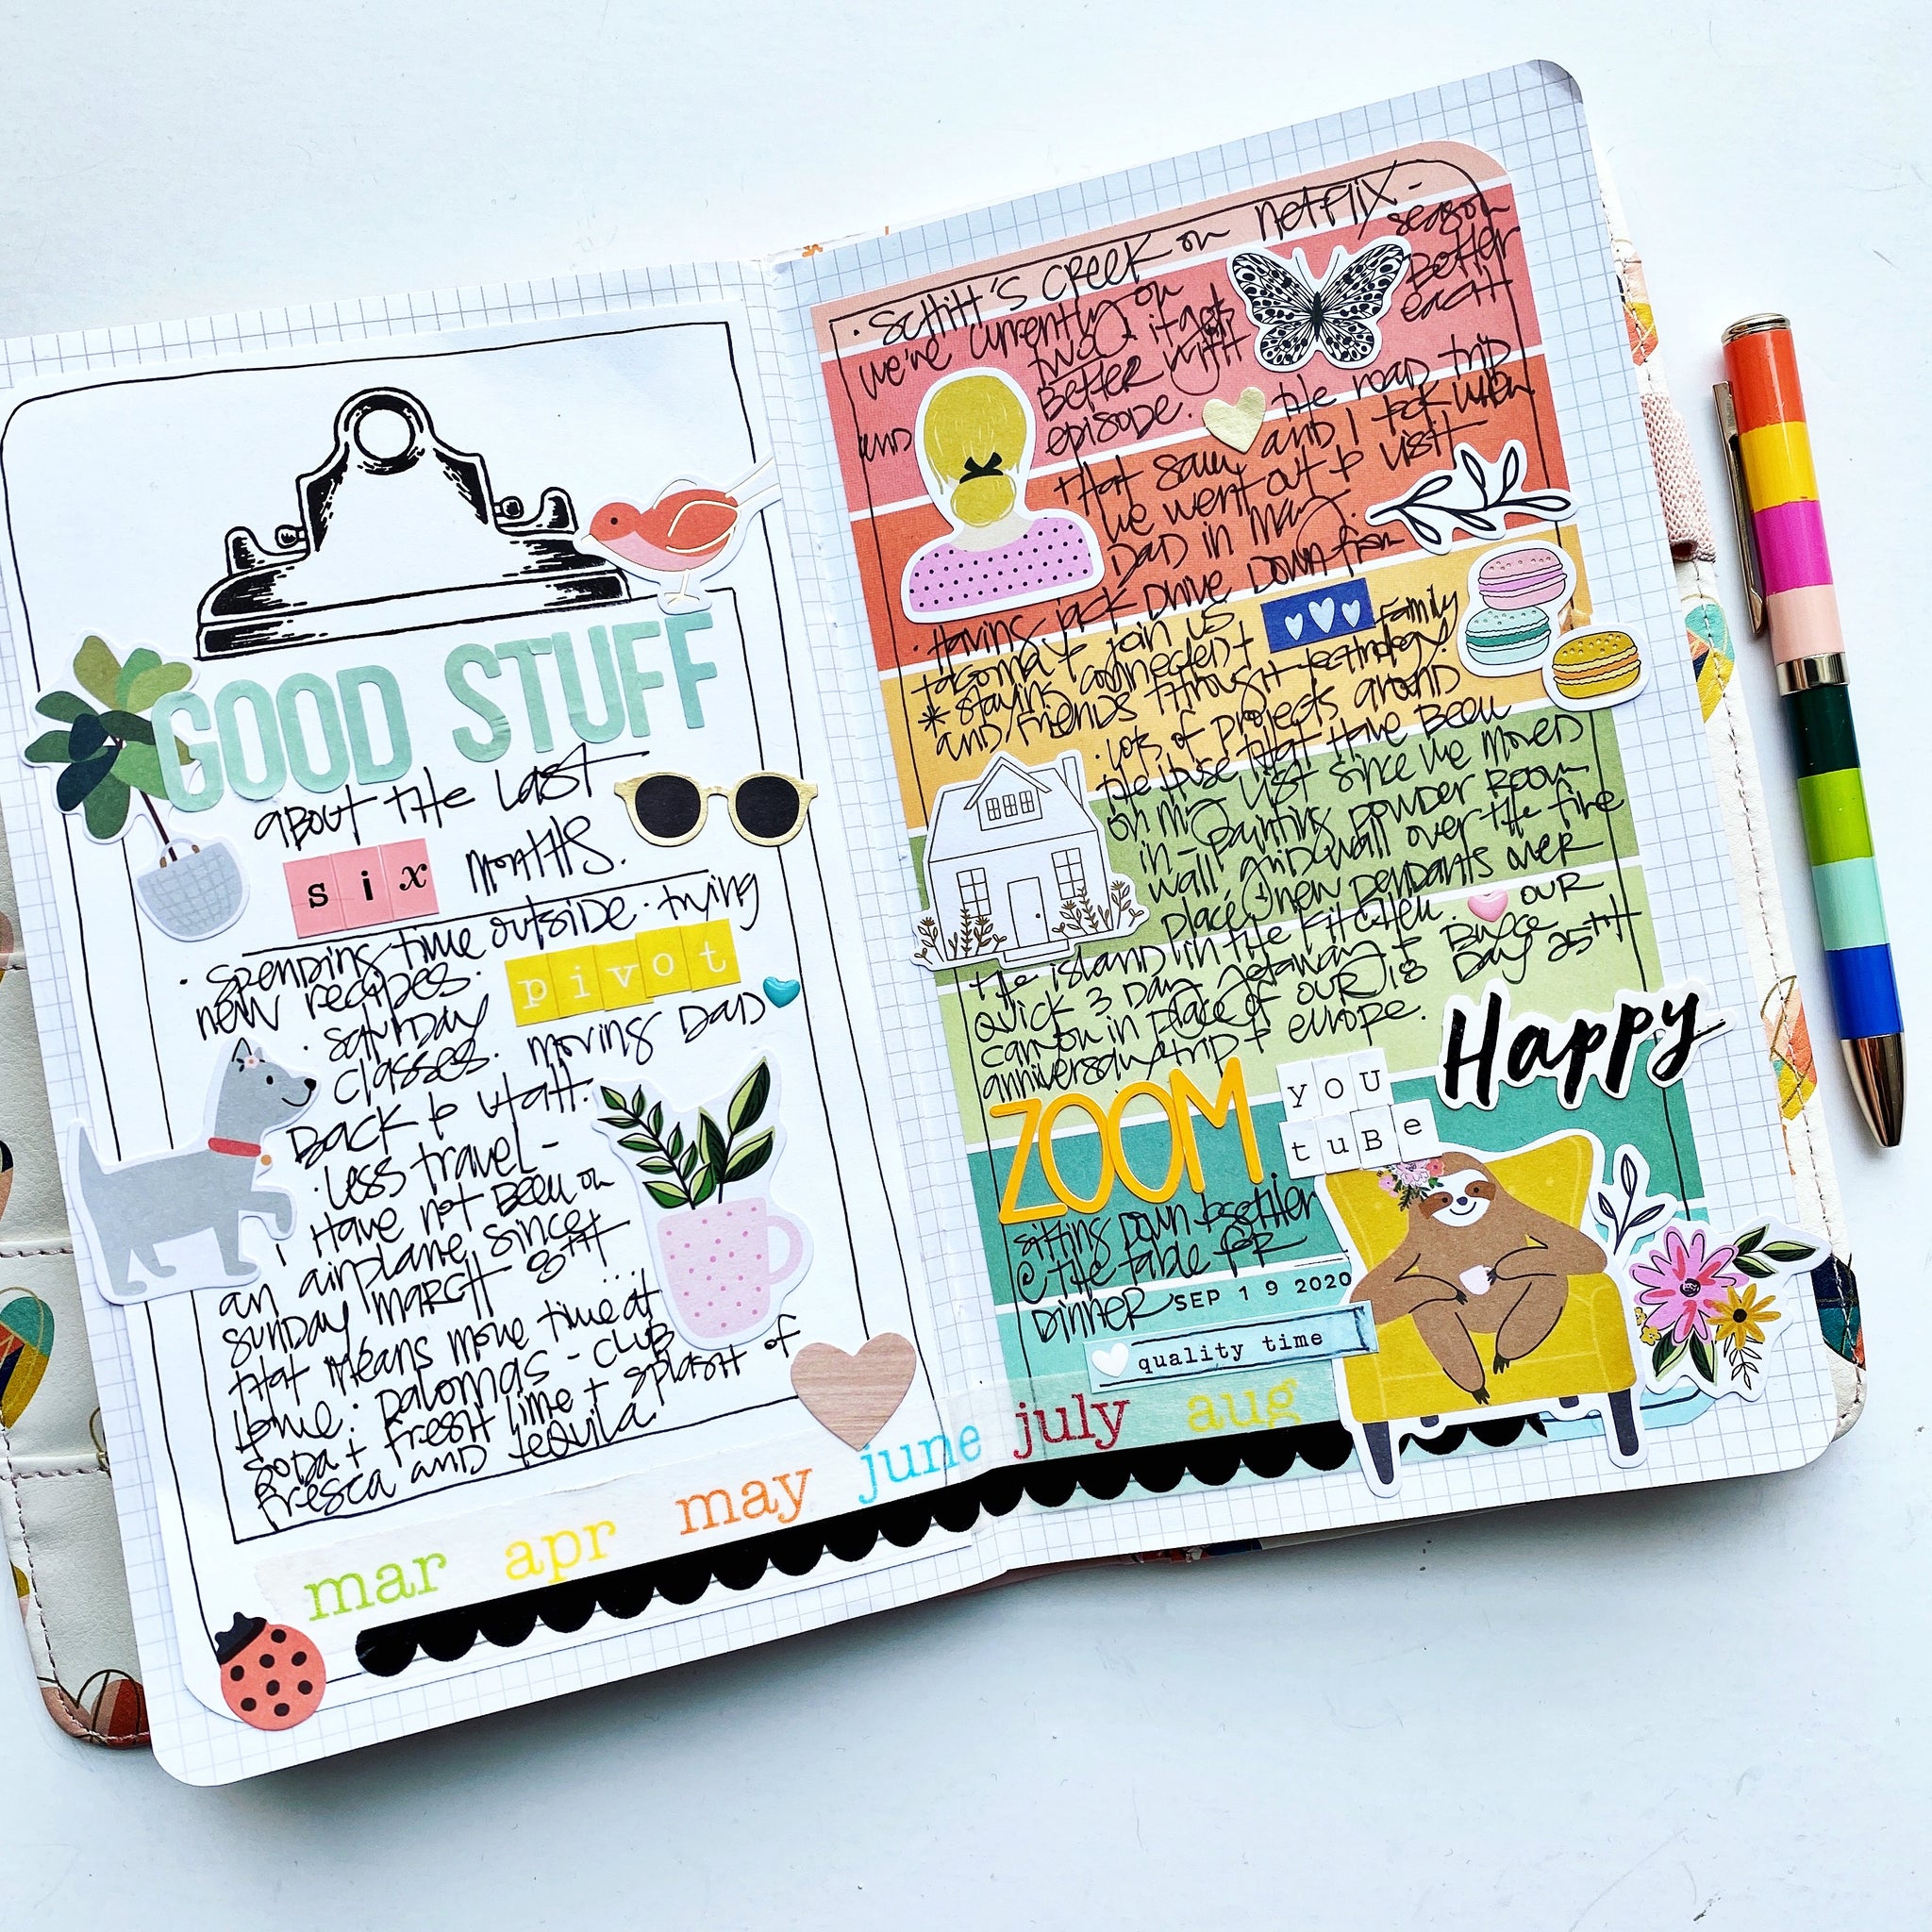 GOOD STUFF
about the last
six months.
· spending time outside · trying
new recipes · pivot
· Saturday
classes. moving Dad
back to Utah.
· less travel -
i have not been on
an airplane since
Sunday March 8th ...
that means more time at
home: palomas - club
soda + fresh lime + splash of
fresca and tequila.
mar apr may june july aug
· Schitt's Creek on netflix -
we're currently on season
two. it gets better
better with each
and episode.
the road trip
that Sam and I took when
we went out to visit
Dad in May.
· Having Jack drive down from
tacoma to join us
* staying connected to family
and friends through technology.
· lots of projects around
the house that have been
on my list since we moved
in - painting powder room
wall grid wall over the fire
place, new pendants over
the island in the kitchen. our
quick 3 day getaway to Bryce
canyon in place of our 18 day 25th
anniversary trip to europe.
Happy
ZOOM
you
tuBe
sitting down together
@ the table for
dinner
SEP 19 2020
quality time